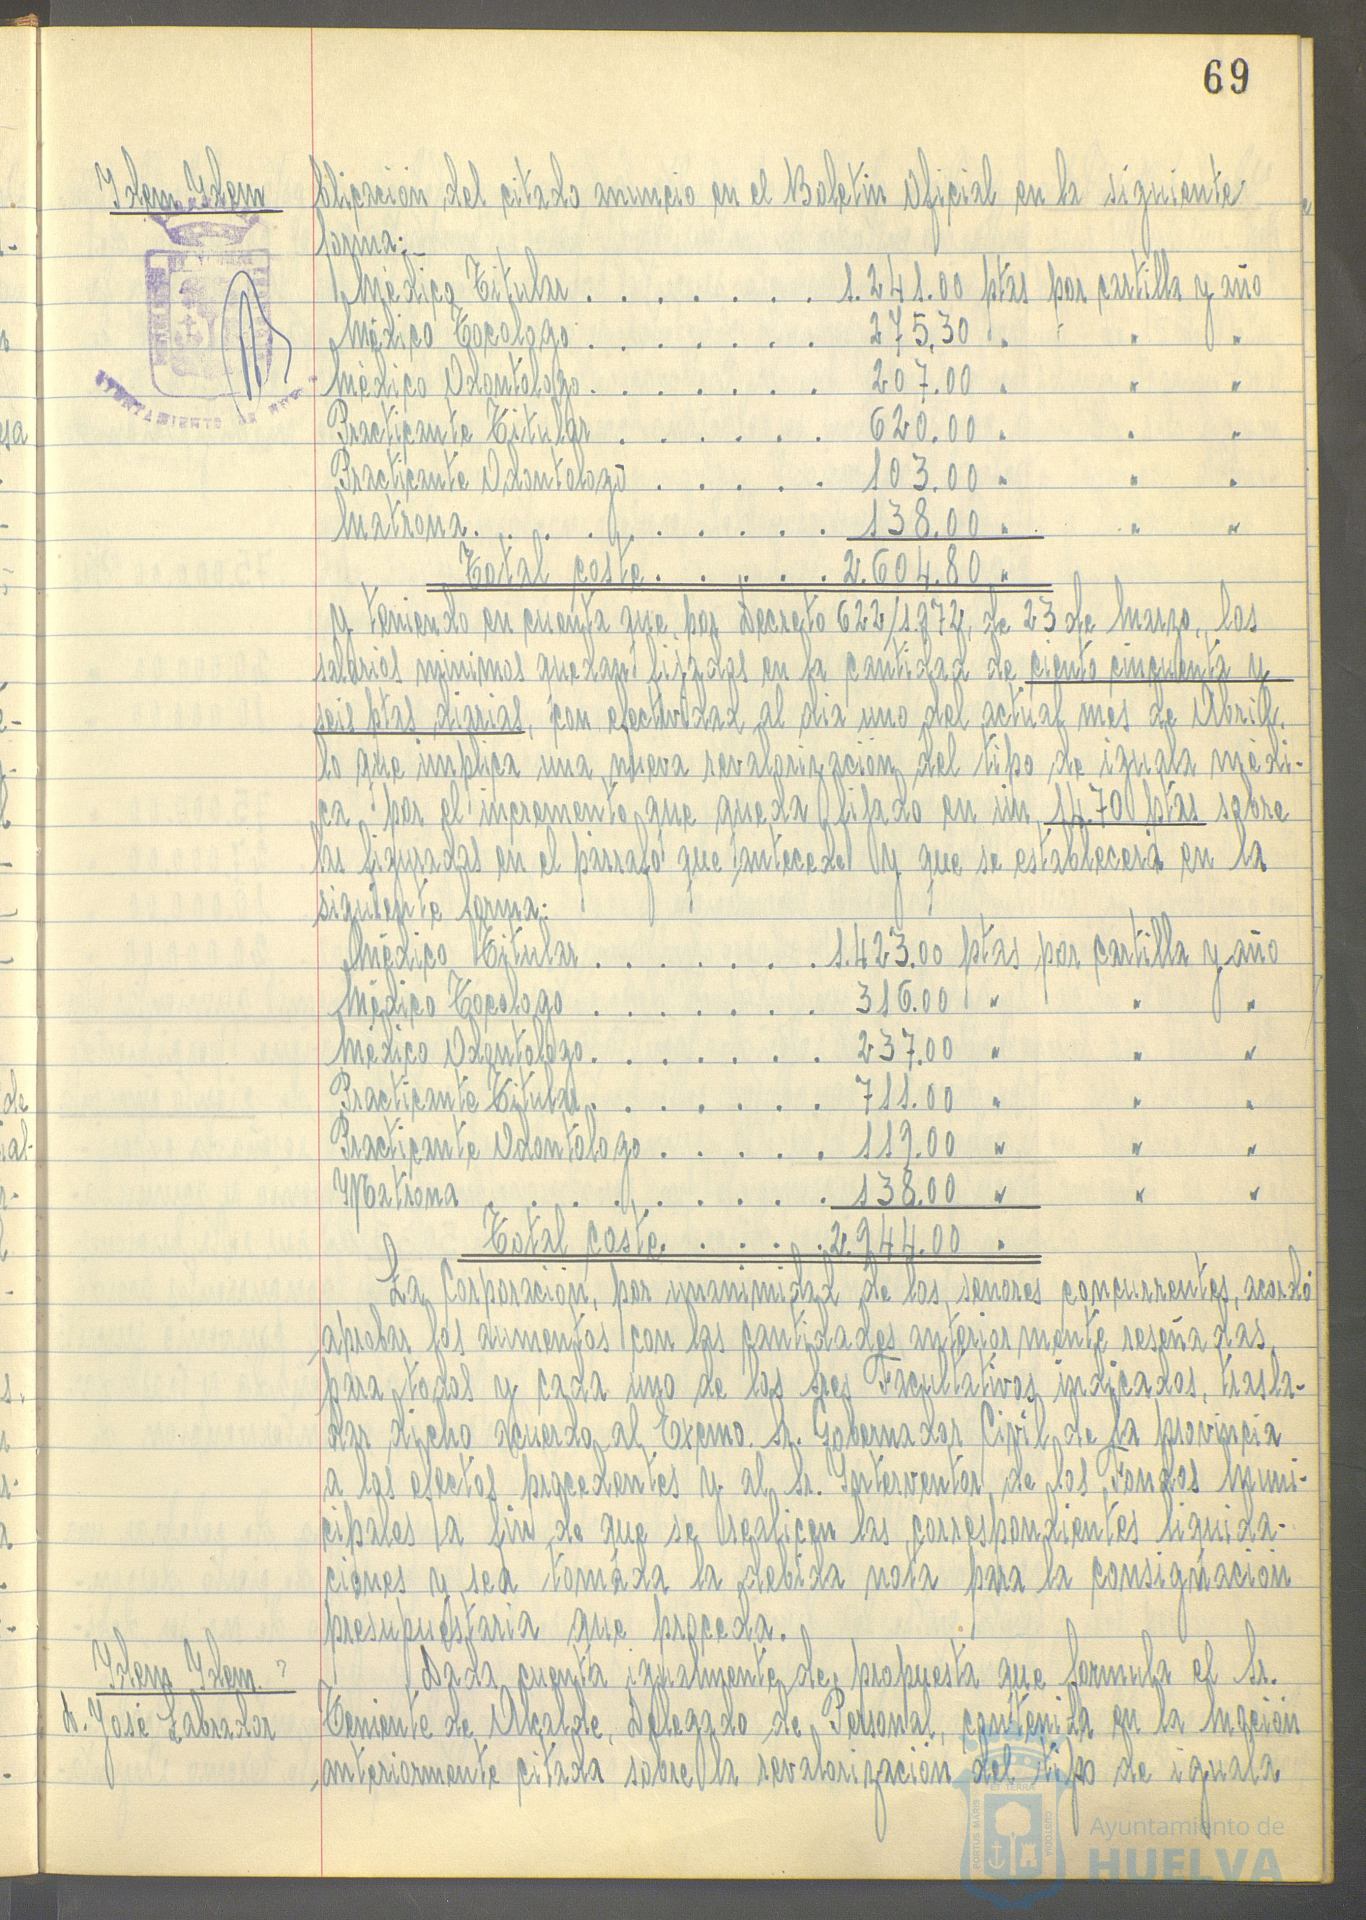 69
Idem Idem
blicación del citado anuncio en el Boletin Oficial en la siguiente
forma:
Médico Titular . . . . . . . 1.241.00 ptas por cartilla y año
Médico Tocologo . . . . . . . 275,30 " " " "
Médico Odontologo . . . . . . . 207.00 " " "
Practicante Titular . . . . . . 620.00 " " "
Practicante Odontologo . . . . . 103.00 " " "
Matrona . . . . . . . . . . 138.00 " " "
Total coste . . . . . 2.604.80 "
y teniendo en cuenta que, por Decreto 622/1.972, de 23 de Marzo, los
salarios minimos quedan fijados en la cantidad de ciento cincuenta y
seis ptas diarias, con efectividad al dia uno del actual mes de Abril,
lo que implica una nueva revalorización del tipo de iguala médi-
ca por el incremento que queda fijado en un 14.70 ptas sobre
las figuradas en el parrafo que antecede y que se establecerá en la
siguiente forma:
Médico Titular . . . . . . . 1.423.00 ptas por cartilla y año
Médico Tocologo . . . . . . . 316.00 " " "
Médico Odontologo . . . . . . . 237.00 " " "
Practicante Titular . . . . . . . 711.00 " " "
Practicante Odontologo . . . . . 119.00 " " "
Matrona . . . . . . . . . 138.00 " " "
Total coste . . . . . 2.944.00 "
La Corporación, por unanimidad de los señores concurrentes, acordó
aprobar los aumentos con las cantidades anteriormente reseñadas,
para todos y cada uno de los Sres Facultativos indicados, trasla-
dar dicho acuerdo al Excmo. Sr. Gobernador Civil de la provincia
a los efectos procedentes y al Sr. Interventor de los Fondos Muni-
cipales a fin de que se realicen las correspondientes liquida-
ciones y sea tomada la debida nota para la consignación
presupuestaria que proceda.
Idem Idem
D. José Labrador
Dada cuenta igualmente de propuesta que formula el Sr.
Teniente de Alcalde, Delegado de Personal, contenida en la Moción
anteriormente citada sobre la revalorización del tipo de iguala
AYUNTAMIENTO DE
PORTUS MARIS
ET TERRA
CUSTODIA
Ayuntamiento de
HUELVA